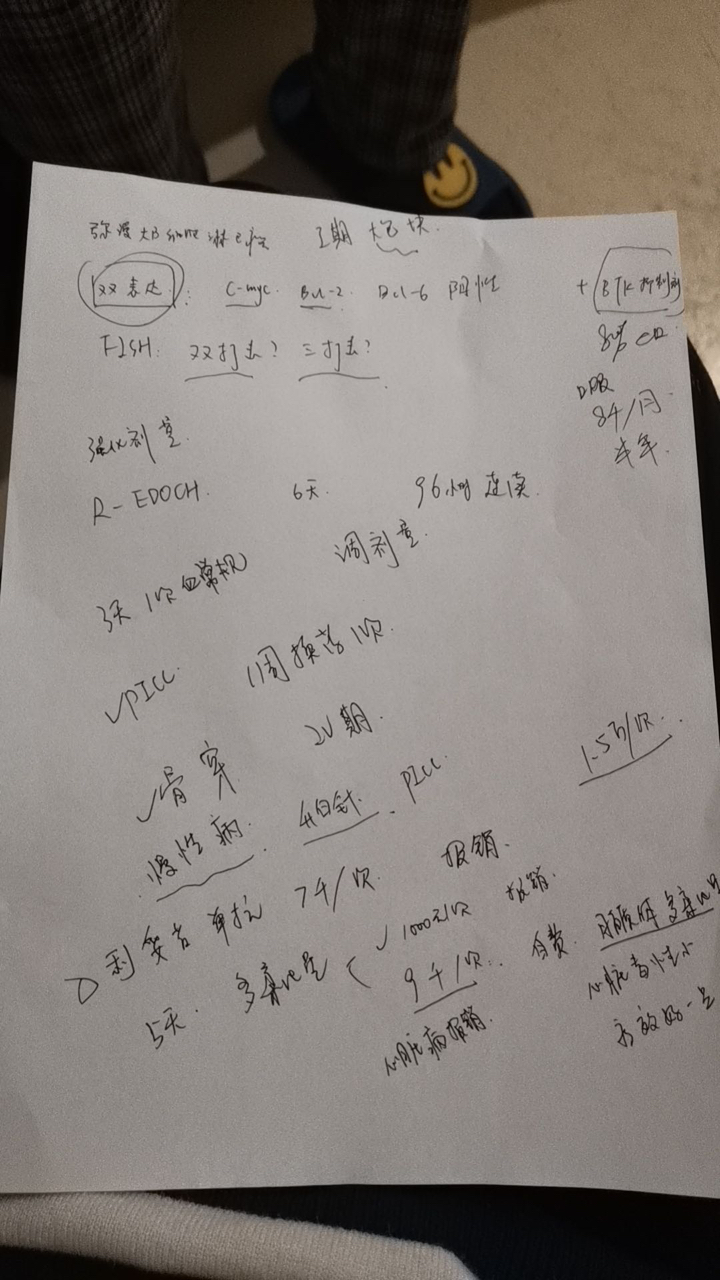 弥漫大B 淋巴瘤 I期 大包块.
双表达: C-myc. Bcl-2. Bcl-6 阳性 + BTK抑制剂
FISH. 双打击? 三打击?
口服
8千/月
半年.
强化剂量.
R-EDOCH. 6天. 96小时 连续.
3天1次血常规 调剂量.
√PICC. 1周换药1次.
√骨穿 分期.
慢性病. 升白针. PICC. 1.5万/次.
利妥昔单抗 7千/次. 报销.
5天. 多柔比星 √1000元/次 报销.
9千/次. 自费. 脂质体多柔比星
心脏病报销. 心脏毒性小
疗效好一点